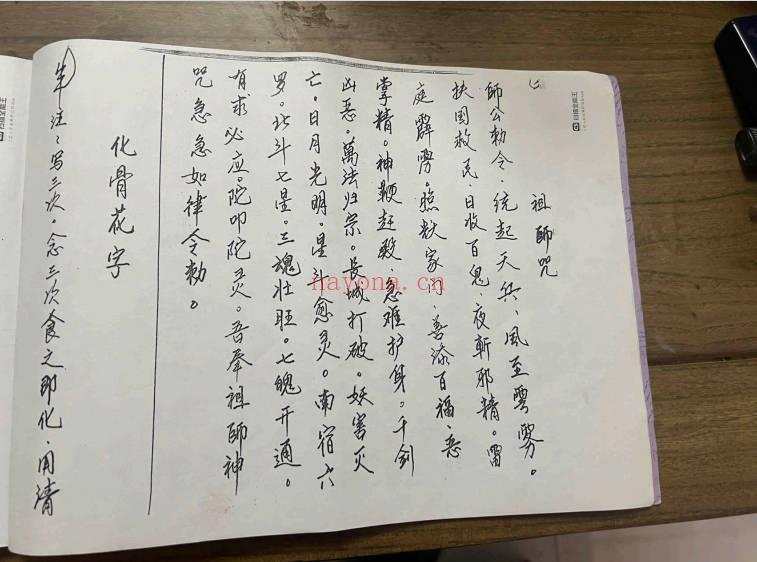 祖師咒
師公勅令.统起天兵、風至雲霧。
扶国救民.日收百鬼、夜斬邪精。雷
庭霹雳。照妖家门.善添百福、悉
掌精。神鞭赶殺.急难护身。千剑
凶恶。萬法归宗。長城打破。妖害灭
亡。日月光明。星斗愈灵。南宿六
罗。北斗七星。三魂壮旺。七魄开通。
有求必应。陀叩陀灵。吾奉祖師神
咒急急如律令勅。
化骨花字
注:写三次。念三次食之即化.用清
nayona.cn